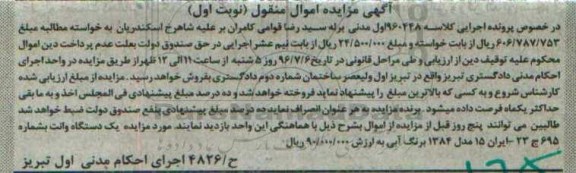 آگهی مزایده اموال منقول (نوبت اول)
در خصوص پرونده اجرایی کلاسه ۹۶۰۲۴۸اول مدنی برله سید رضا قوامی کامران بر علیه شاهرخ اسکندریان به خواسته مطالبه مبلغ
۶۰۶/۷۸۷/۷۵۳ ریال از بابت خواسته و مبلغ ۲۴/۵۰۰/۰۰۰ ریال از بابت نیم عشر اجرایی در حق صندوق دولت بعلت عدم پرداخت دین اموال
محکوم علیه توقیف دین از ارزیابی و طی مراحل قانونی در تاریخ ۹۶/۷/۶ روز ۵ شنبه از ساعت ۱۱ الی ۱۲ ظهر از طریق مزایده در واحد اجرای
احکام مدنی دادگستری تبریز واقع در تبریز اول ولیعصر ساختمان شماره دوم دادگستری بفروش خواهد رسید. مزایده از مبلغ ارزیابی شده
کارشناس شروع و به کسی که بالاترین مبلغ را پیشنهاد نماید فروخته خواهد شد و ده درصد مبلغ پیشنهادی فی المجلس اخذ و به مابقی
حداکثر یکماه فرصت داده میشود. برنده مزایده به هر عنوان انصراف نماید ده درصد مبلغ پیشنهادی بنفع صندوق دولت ضبط خواهد شد
طالبین می توانند پنج روز قبل از مزایده از اموال بشرح ذیل با هماهنگی این واحد بازدید نمایند. مورد مزایده یک دستگاه وانت بشماره
۶۹۵ ج ۲۳ -ایران ۱۵ مدل ۱۳۸۴ برنگ آبی به ارزش ۹۰/۰۰۰/۰۰۰ ریال
ح/۴۸۲۶ اجرای احکام مدنی اول تبریز